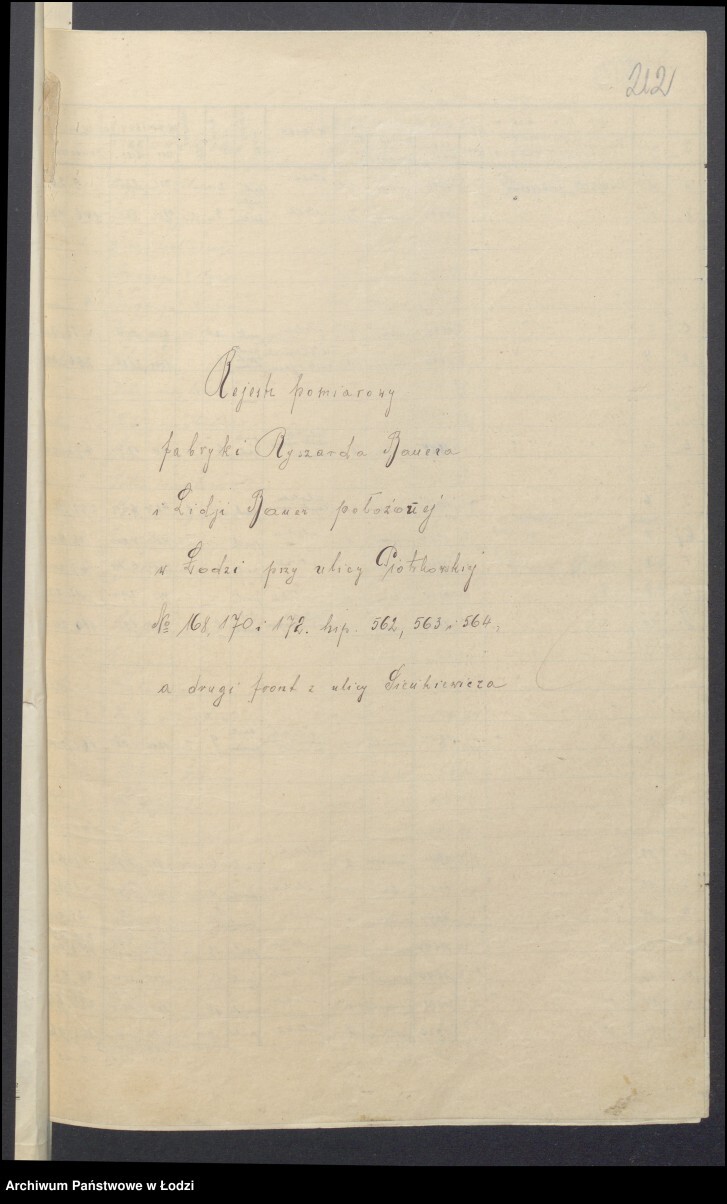 212
Rejestr pomiarowy
fabryki Ryszarda Bauera
i Lidji Bauer położonej
w Łodzi przy ulicy Piotrkowskiej
№ 168, 170 i 172. hip. 562, 563 i 564,
a drugi front z ulicy Sienkiewicza
Archiwum Państwowe w Łodzi